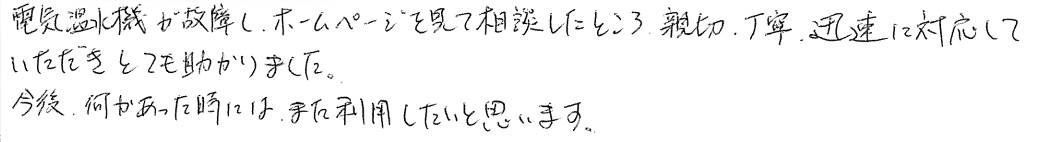 電気温水機が故障し、ホームページを見て相談したところ、親切、丁寧、迅速に対応して
いただきとても助かりました。
今後、何かあった時には、また利用したいと思います。